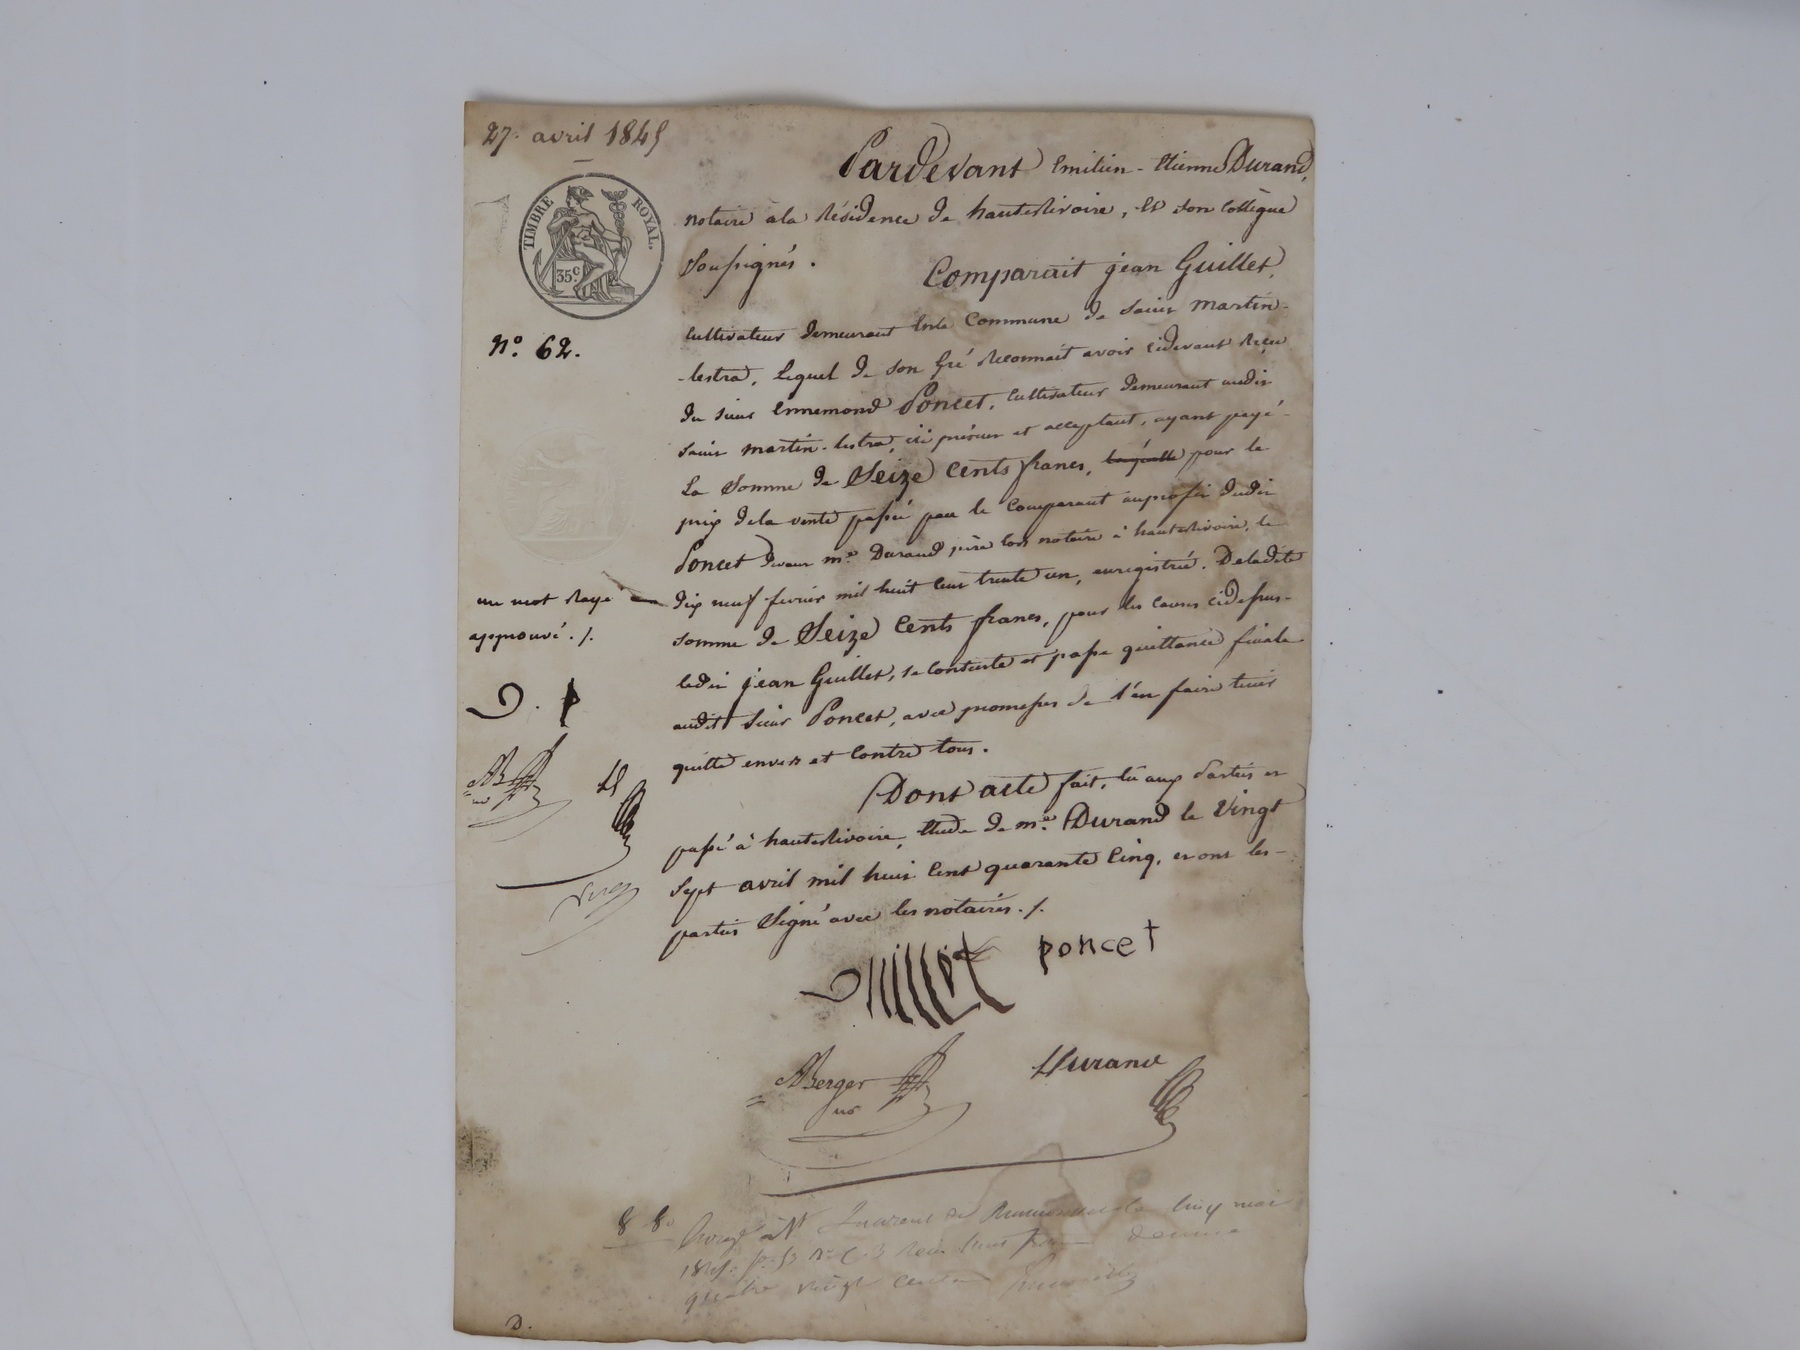 27. avril 1845
TIMBRE ROYAL.
35c
No. 62.
Pardevant Emilien - Etienne Durand,
notaire à la Résidence de hauterivoire, et son collègue
soussignés.
Comparait jean Guillet,
cultivateur demeurant en la commune de saint martin-
-lestra, lequel de son gré Reconnait avoir cidevant Reçu
du sieur Ennemond Poncet, cultivateur demeurant audit
saint martin-lestra, ici présent et acceptant, ayant payé-
La somme de Seize cents francs, laquelle pour le
prix dela vente passée par le comparant auprofit dudit
Poncet devant me. Durand père lors notaire à hauterivoire, le
dix neuf fevrier mil huit cent trente un, enregistrée. Deladite
somme de Seize cents francs, pour les causes cidessus-
ledit jean Guillet, se contente et passe quittance finale
audit sieur Poncet, avec promesse de l'en faire tenir
quitte envers et contre tous.
un mot Rayé
approuvé./.
D. P
Dont acte fait, lu aux Parties et
passé à hauterivoire, Etude de me. Durand le Vingt
sept avril mil huit cent quarante cinq, et ont les-
parties Signé avec les notaires./.
Guillet poncet
ABerger
Durand
8 80
cinq mai
quatre vingt centimes
D.